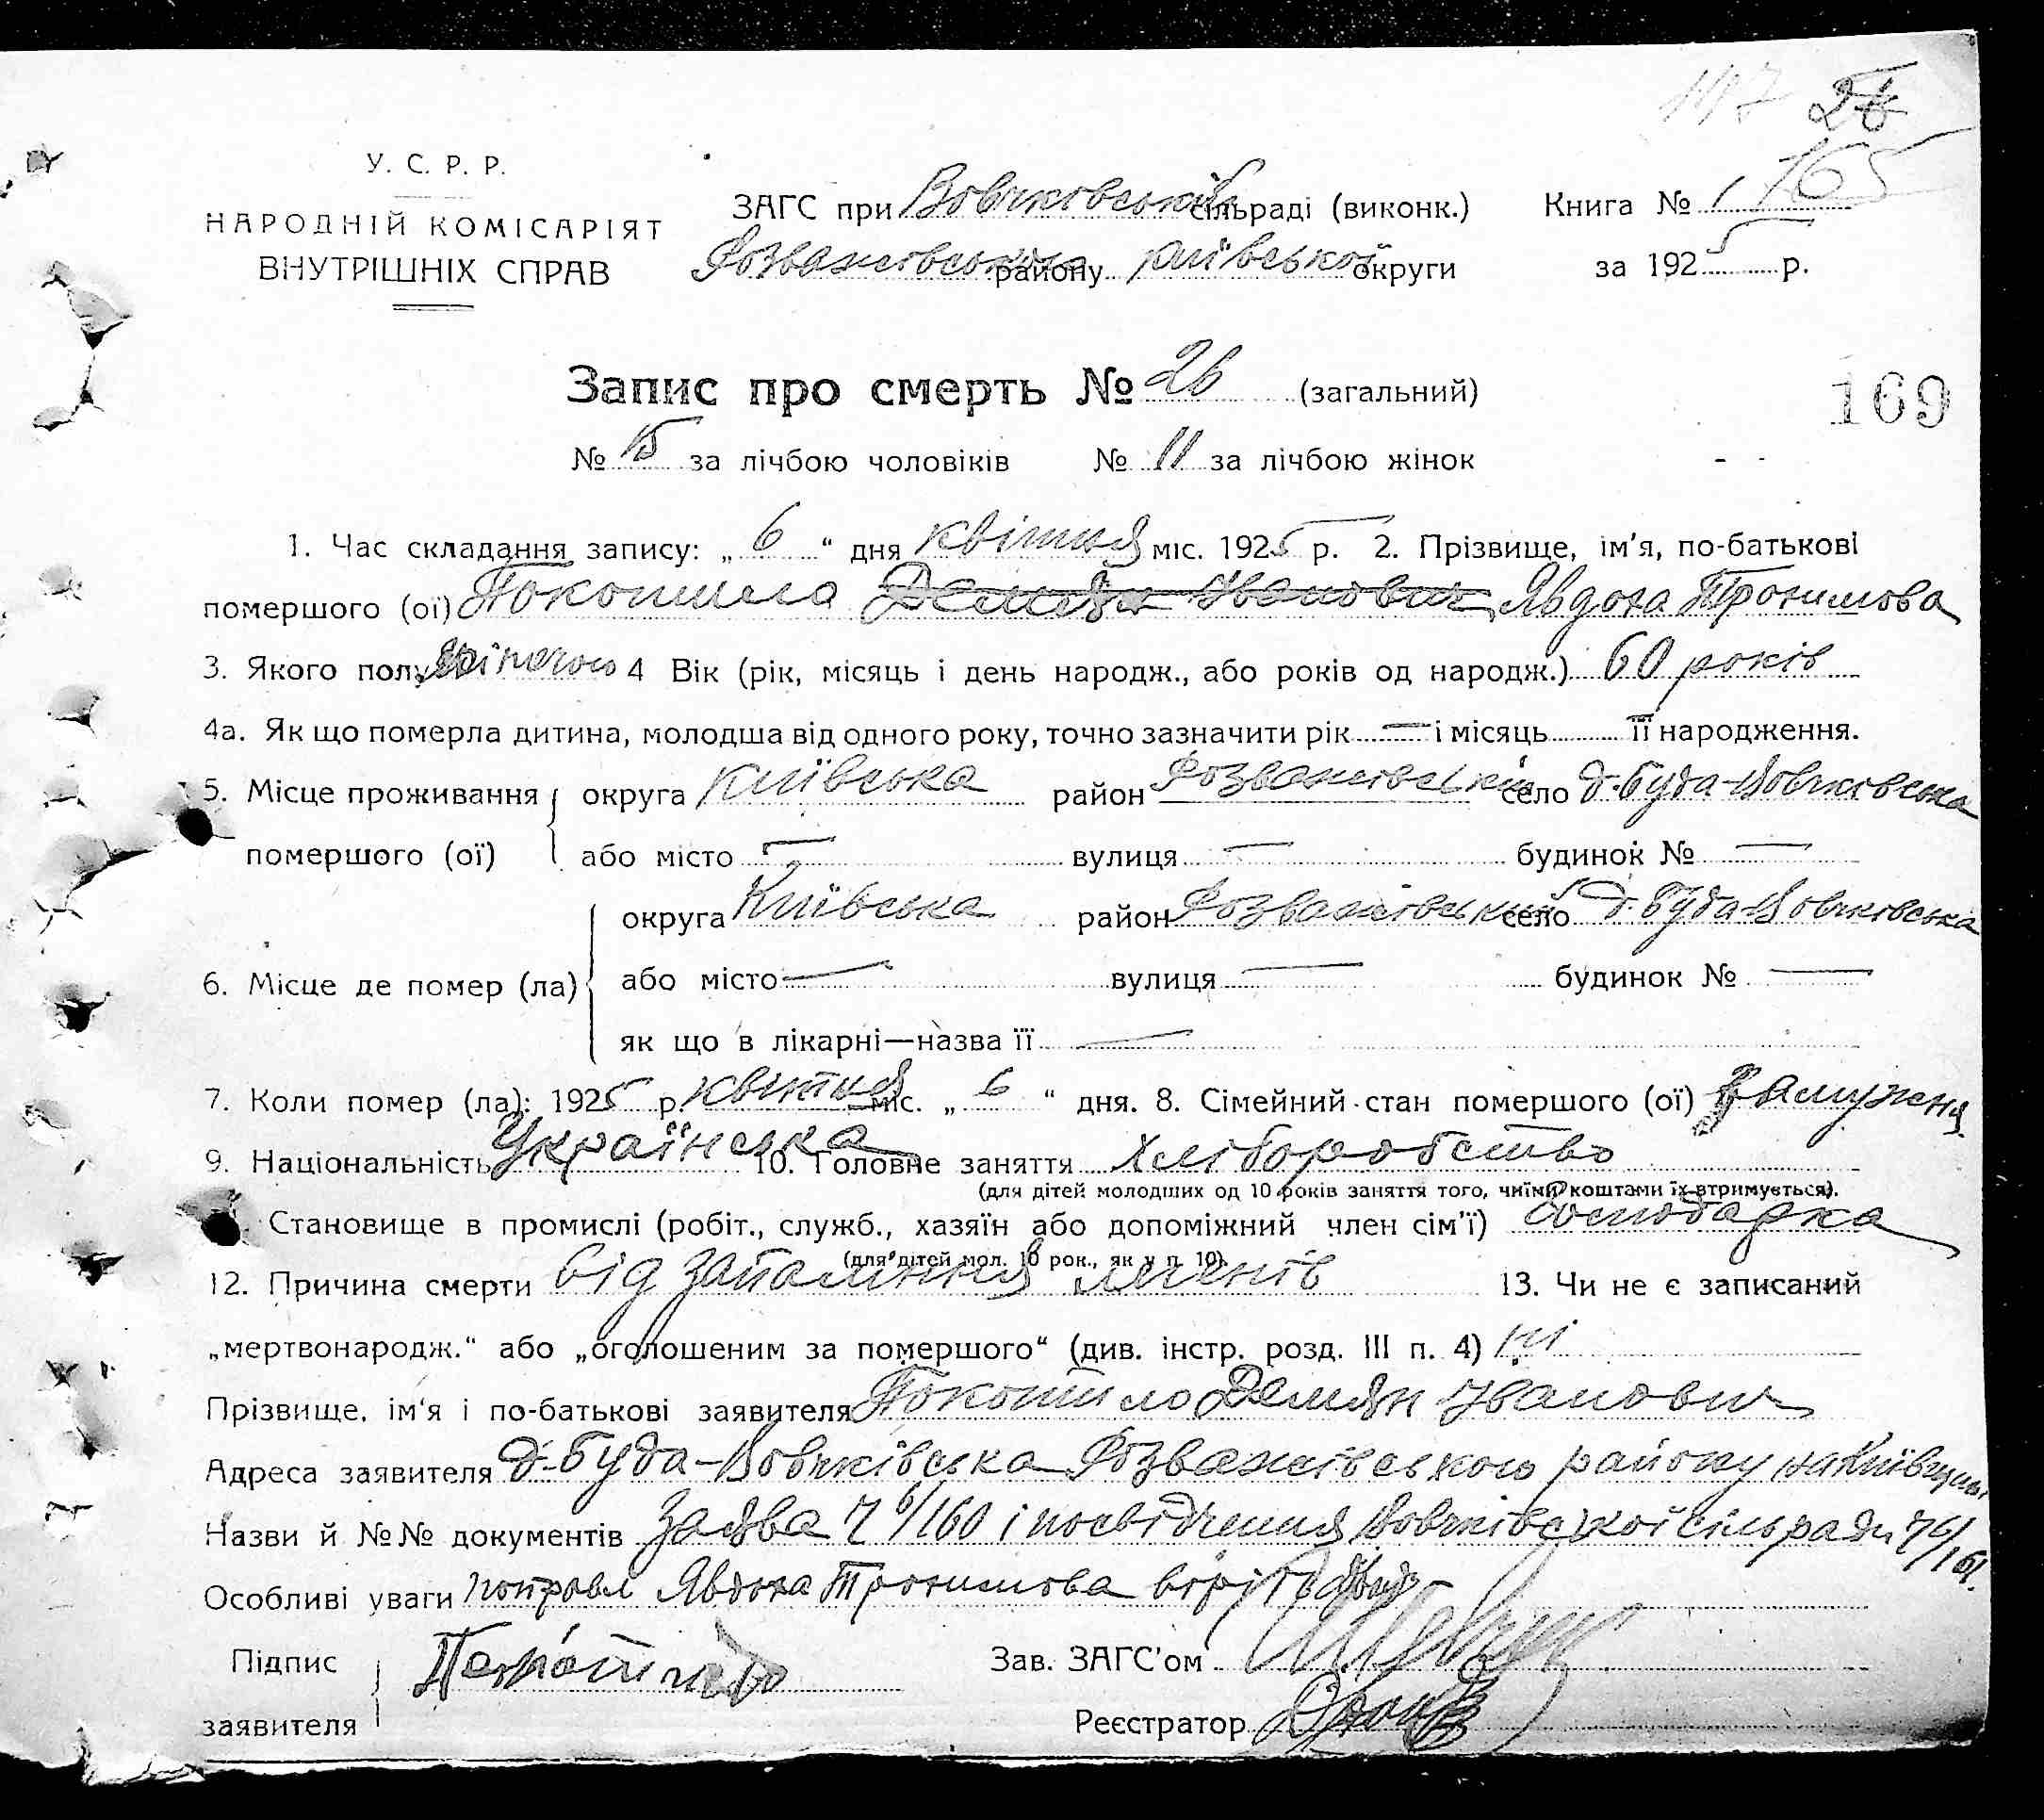 У. С. Р. Р.
НАРОДНІЙ КОМІСАРІЯТ
ВНУТРІШНІХ СПРАВ
165
ЗАГС при Вовчковській сільраді (виконк.) Книга № 1
Розважівського району Київської округи за 1925 р.
Запис про смерть № 26 (загальний)
169
№ 15 за лічбою чоловіків № 11 за лічбою жінок
1. Час складання запису: „ 6 “ дня квітня міс. 1925 р. 2. Прізвище, ім'я, по-батькові
помершого (ої) Покотило Демян Іванович Явдоха Трохимова
3. Якого полу жіночого 4 Вік (рік, місяць і день народж., або років од народж.) 60 років
4а. Як що померла дитина, молодша від одного року, точно зазначити рік — і місяць — її народження.
5. Місце проживання помершого (ої) округа Київська район Розважівський село д. Буда-Вовчківська
або місто — вулиця — будинок № —
6. Місце де помер (ла) округа Київська район Розважівський село д. Буда-Вовчківська
або місто — вулиця — будинок № —
як що в лікарні—назва її —
7. Коли помер (ла): 1925 р. квітня міс. „ 6 “ дня. 8. Сімейний стан помершого (ої) замужня
9. Національність Українська 10. Головне заняття хліборобство
(для дітей молодших од 10 років заняття того, чиїми коштами їх втримується).
Становище в промислі (робіт., служб., хазяїн або допоміжний член сім'ї) господарка
(для дітей мол. 10 рок., як у п. 10).
12. Причина смерти від запалення легенів 13. Чи не є записаний
„мертвонародж.“ або „оголошеним за помершого“ (див. інстр. розд. III п. 4) ні
Прізвище, ім'я і по-батькові заявителя Покотило Демян Іванович
Адреса заявителя д. Буда-Вовчківська Розважівського району на Київщині
Назви й №№ документів Заява 6/160 і посвідчення Вовчківської сільради 6/161.
Особливі уваги Явдоха Трохимова вірить
Підпис заявителя Покотило Зав. ЗАГС'ом
Реєстратор